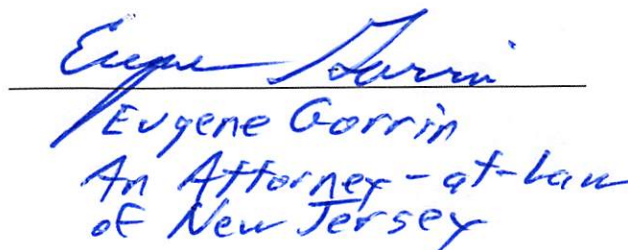 Eugene Gorrin
Eugene Gorrin
An Attorney-at-Law
of New Jersey